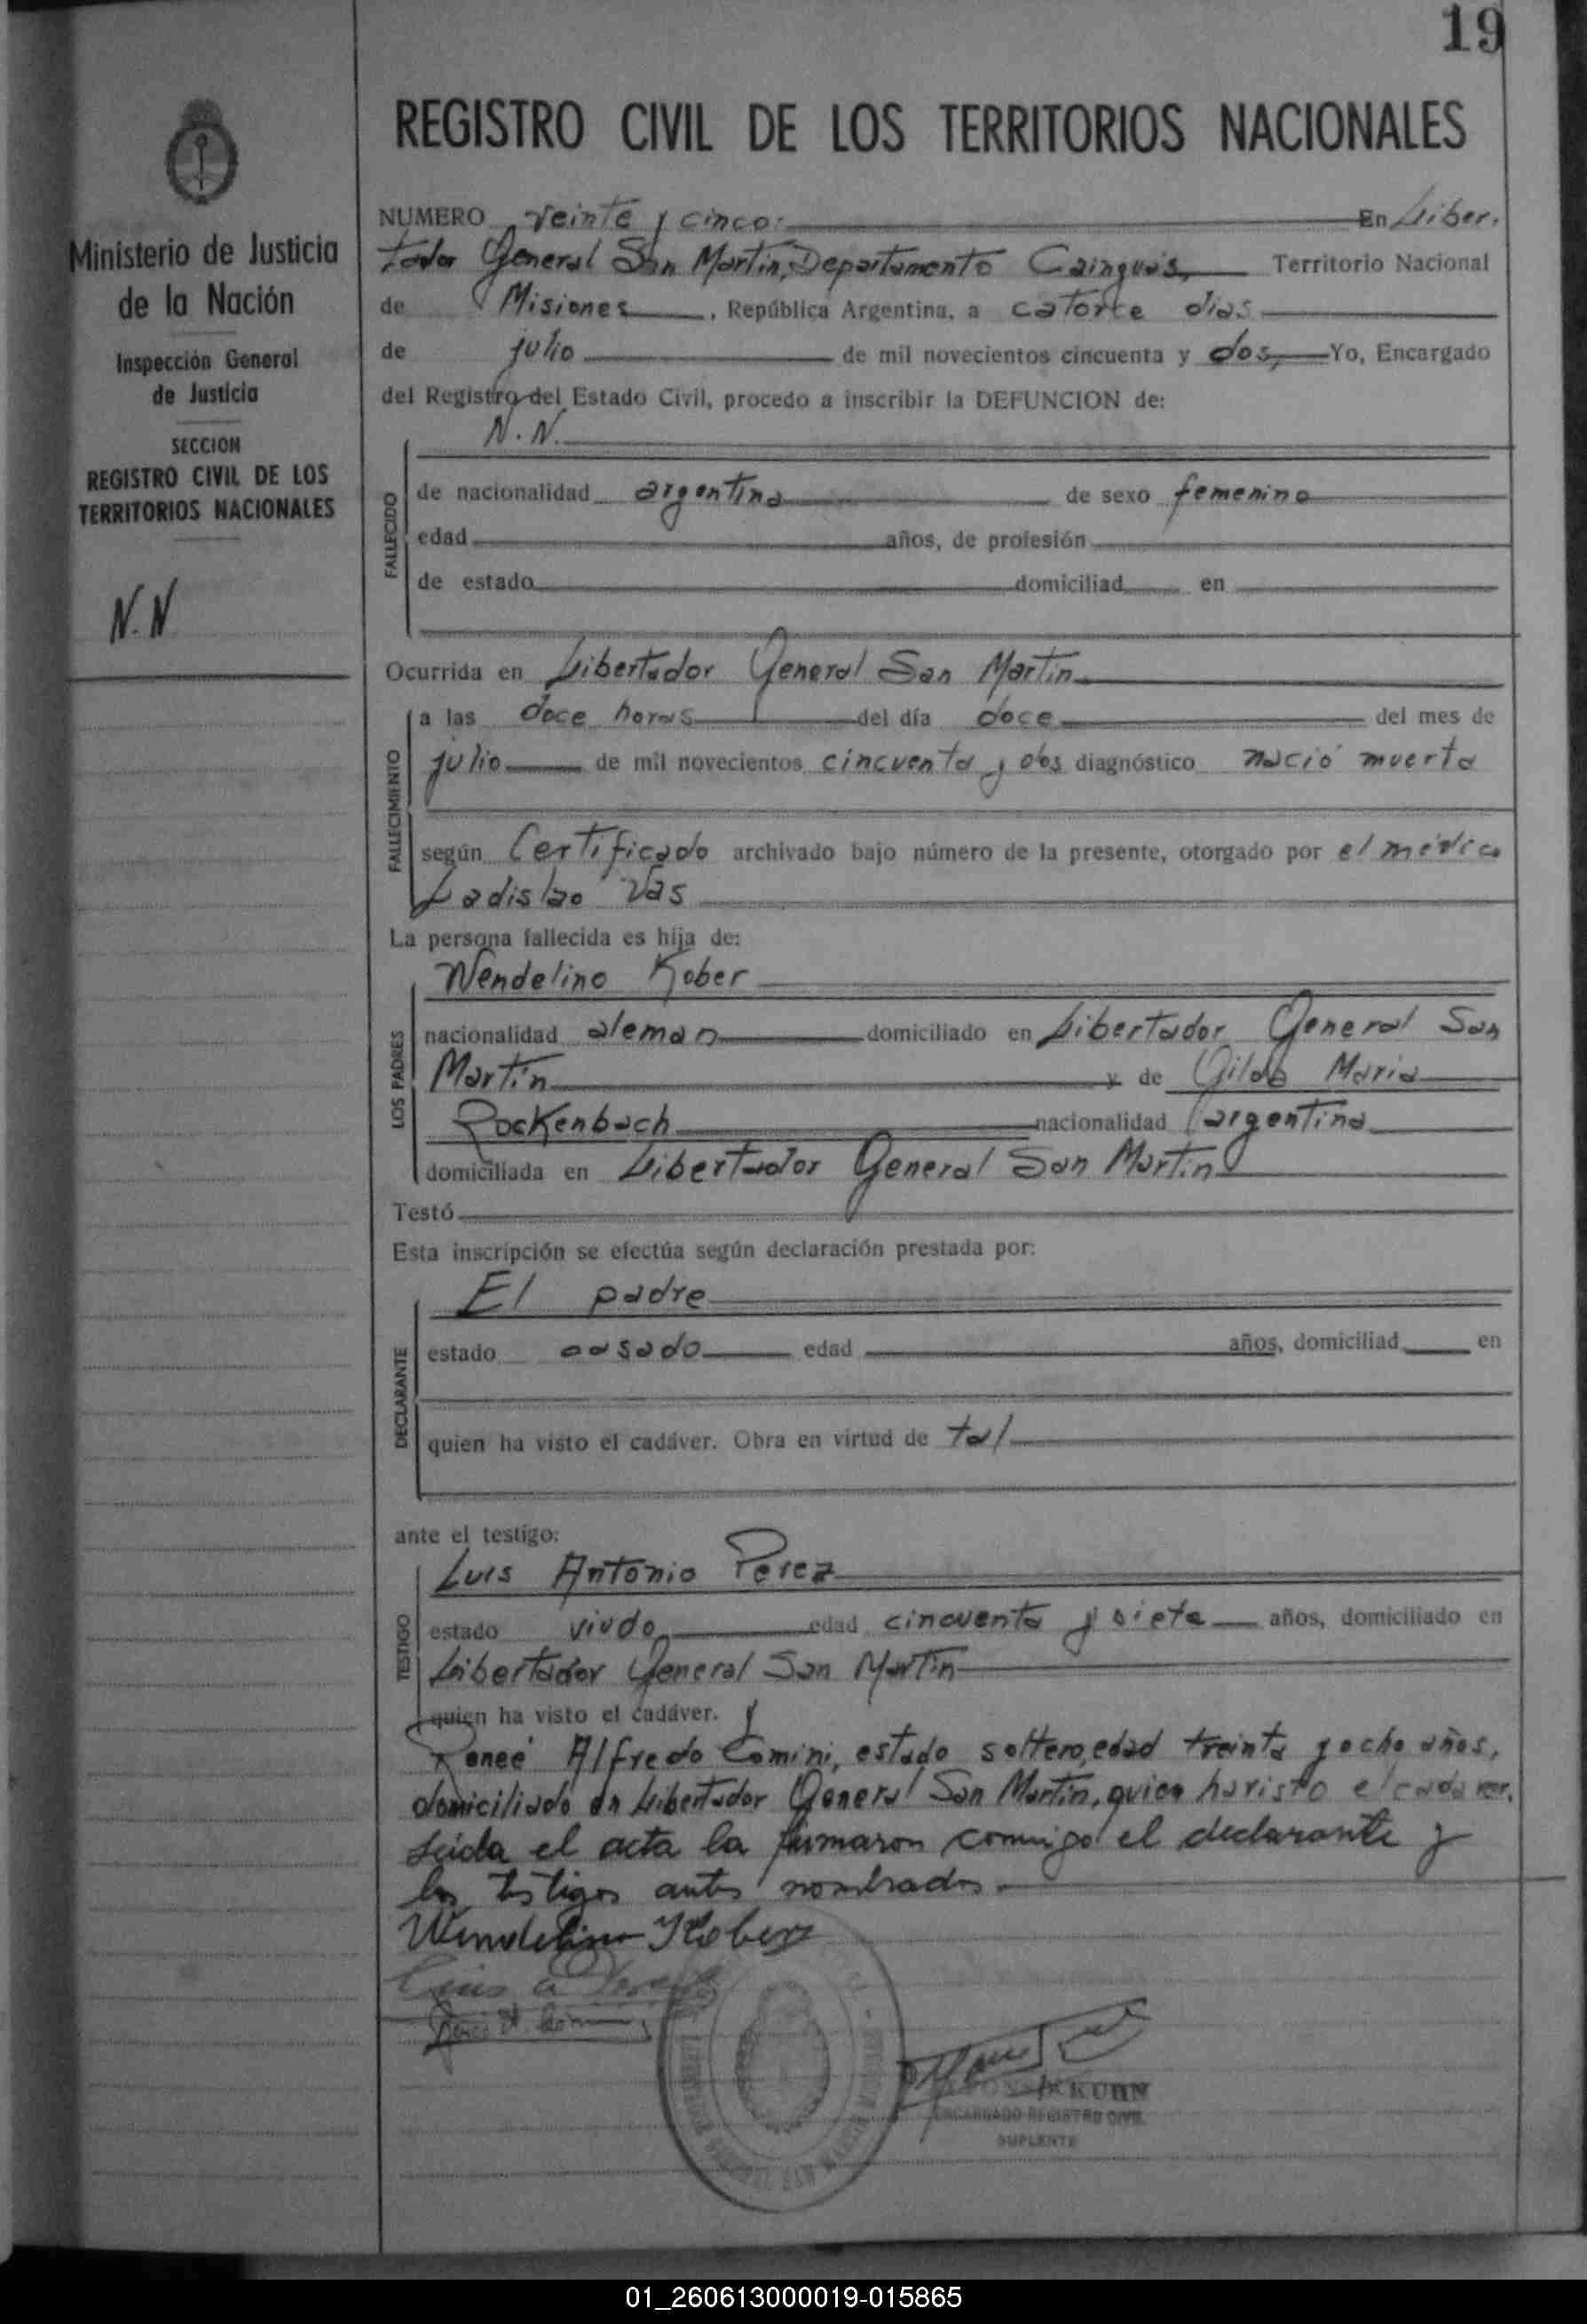 19
REGISTRO CIVIL DE LOS TERRITORIOS NACIONALES
Ministerio de Justicia
de la Nación
Inspección General
de Justicia
SECCION
REGISTRO CIVIL DE LOS
TERRITORIOS NACIONALES
N.N
NUMERO veinte y cinco. En Liber.
tador General San Martín, Departamento Cainguás, Territorio Nacional
de Misiones, República Argentina, a catorce días
de julio de mil novecientos cincuenta y dos, Yo, Encargado
del Registro del Estado Civil, procedo a inscribir la DEFUNCION de:
N. N.
FALLECIDO
de nacionalidad argentina de sexo femenino
edad años, de profesión
de estado domiciliad en
Ocurrida en Libertador General San Martín
FALLECIMIENTO
a las doce horas del día doce del mes de
julio de mil novecientos cincuenta y dos diagnóstico nació muerta
según Certificado archivado bajo número de la presente, otorgado por el médico
Ladislao Vas
La persona fallecida es hija de:
LOS PADRES
Wendelino Kober
nacionalidad aleman domiciliado en Libertador General San
Martín y de Gilda Maria
Rockenbach nacionalidad argentina
domiciliada en Libertador General San Martín
Testó
Esta inscripción se efectúa según declaración prestada por:
DECLARANTE
El padre
estado casado edad años, domiciliad en
quien ha visto el cadáver. Obra en virtud de tal
ante el testigo:
TESTIGO
Luis Antonio Perez
estado viudo edad cincuenta y siete años, domiciliado en
Libertador General San Martín
quien ha visto el cadáver. y
Reneé Alfredo Comini, estado soltero, edad treinta y ocho años,
domiciliado en Libertador General San Martín, quien ha visto el cadaver.
Leída el acta la firmaron conmigo el declarante y
los testigos antes nombrados.
Wendelino Kober
KUHN
ENCARGADO REGISTRO CIVIL
SUPLENTE
01_260613000019-015865